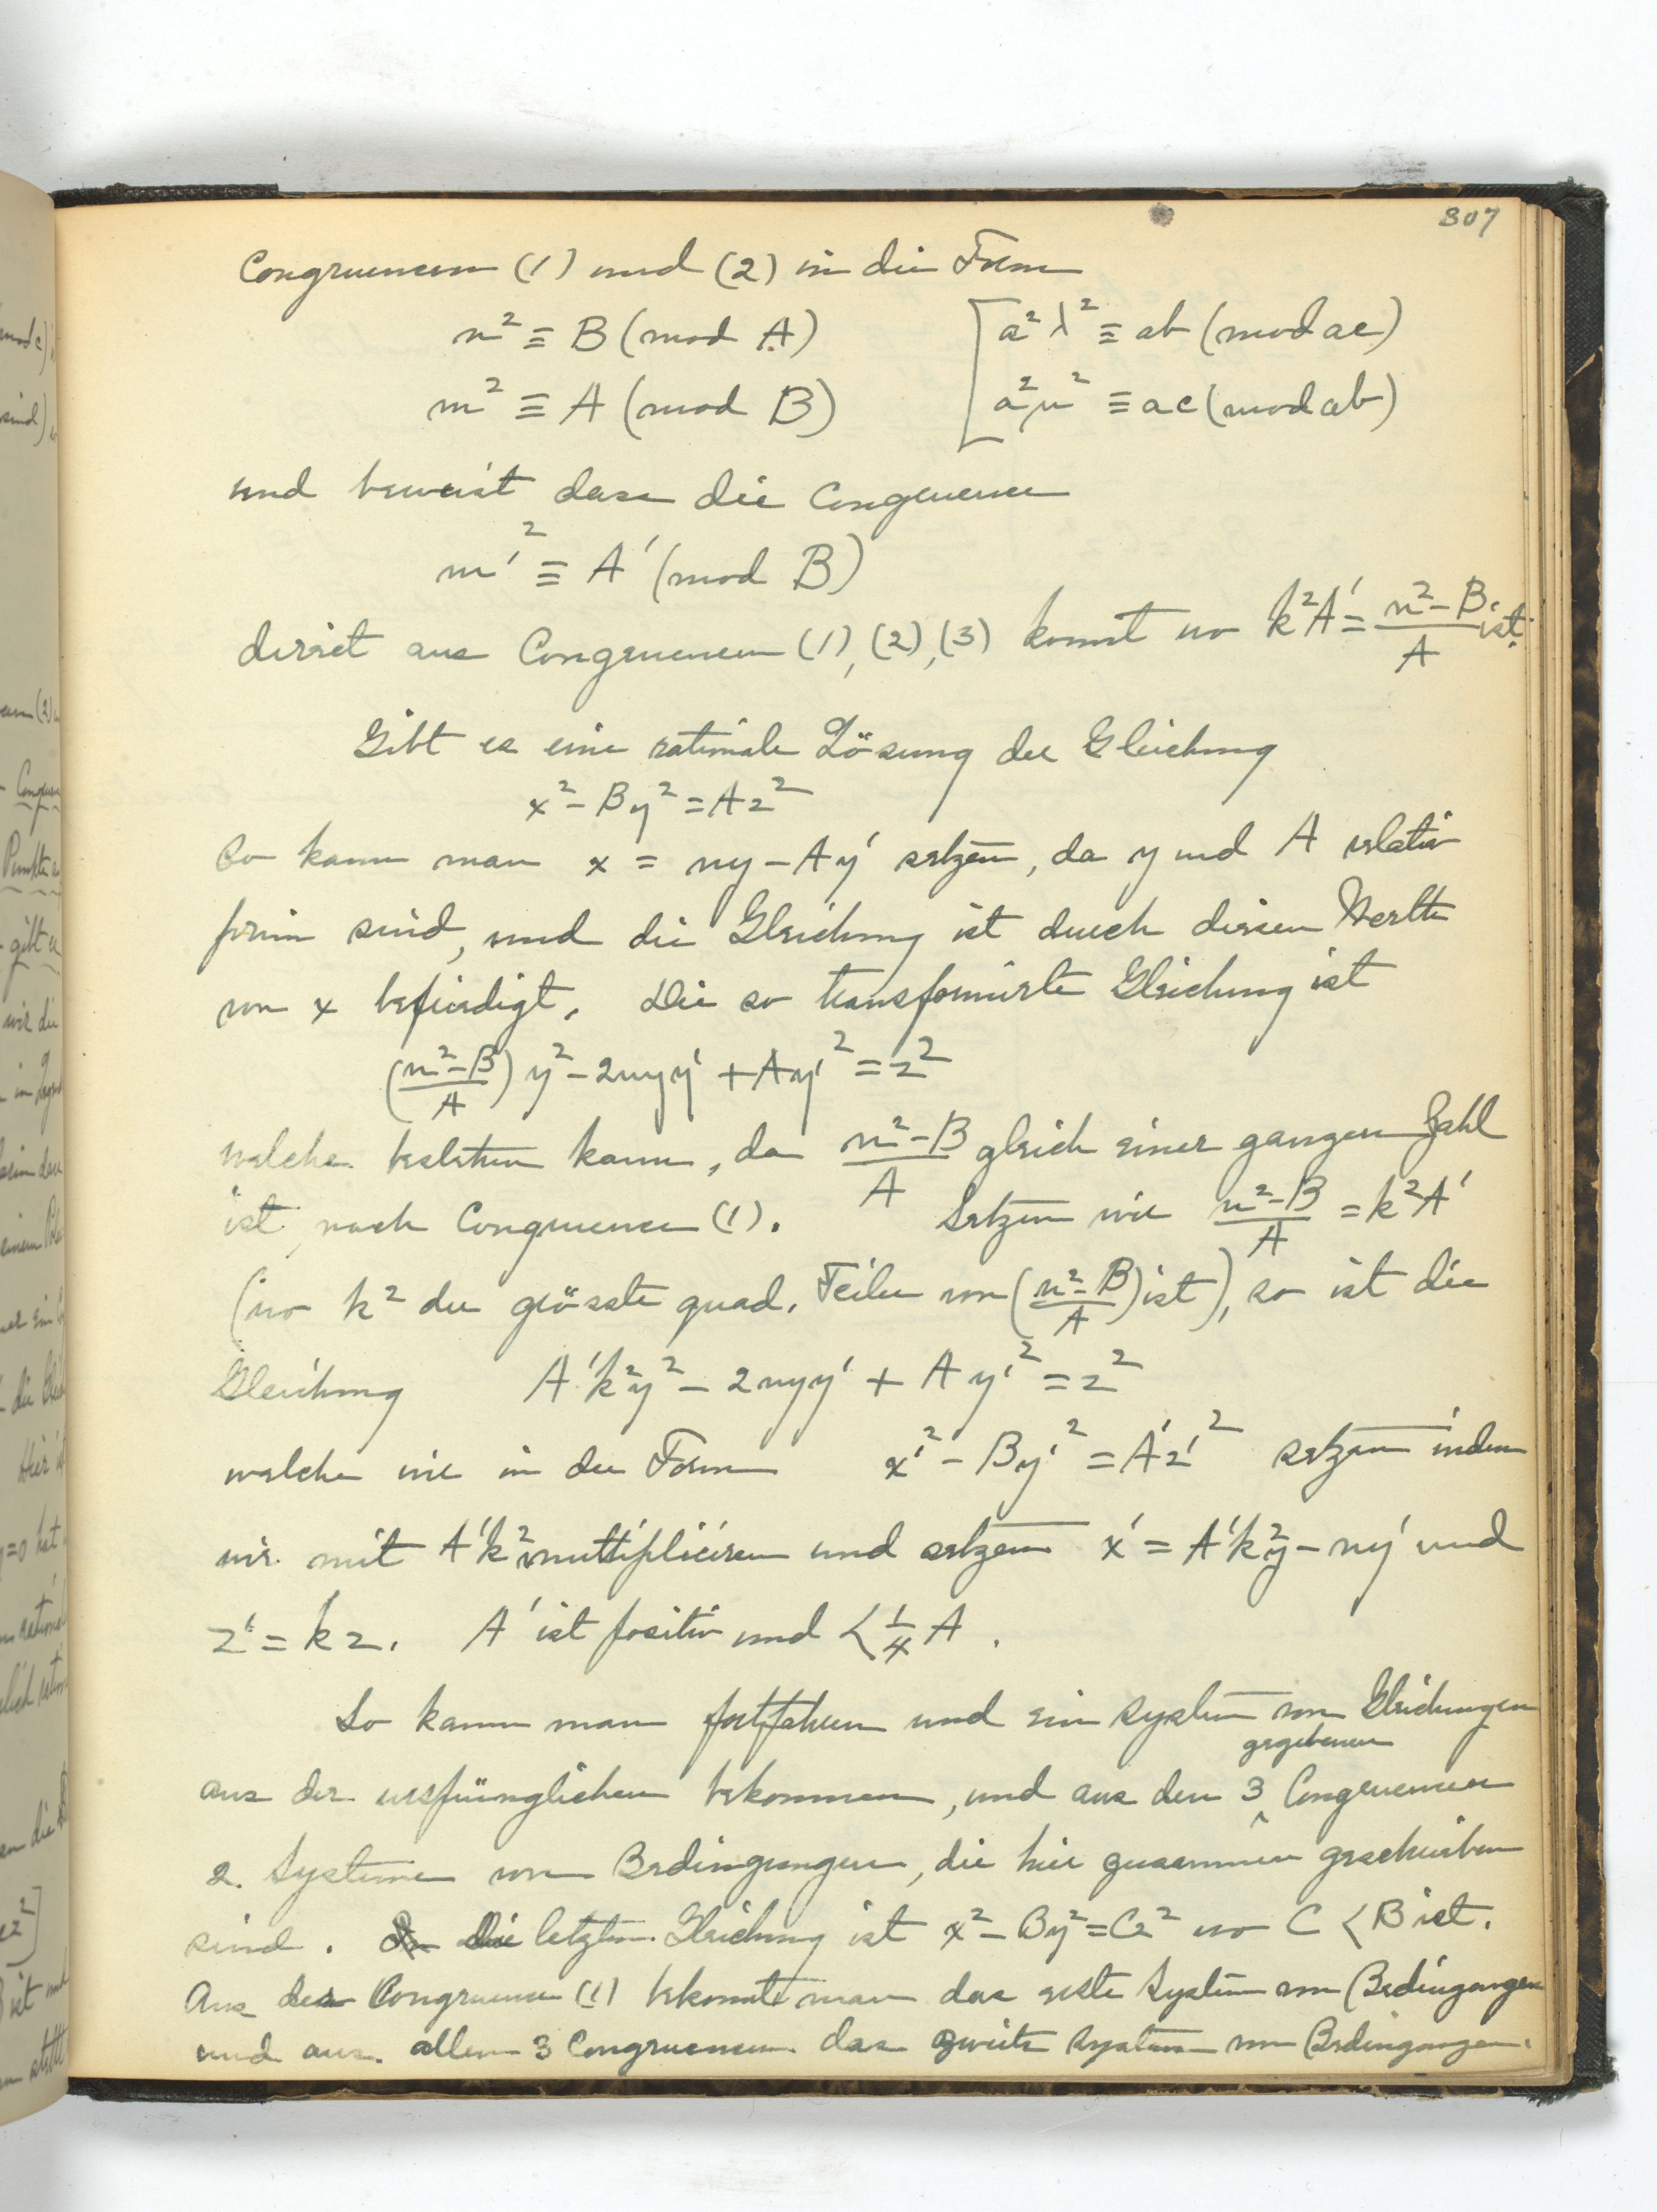 307
Congruenzen (1) und (2) in die Form
n² ≡ B (mod A) [a²λ² ≡ ab (mod ac)
m² ≡ A (mod B) [a²μ² ≡ ac (mod ab)
und beweist dass die Congruenz
m'² ≡ A' (mod B)
direct aus Congruenzen (1), (2), (3) kommt wo k²A' = (n² - B)/A ist.
Gibt es eine rationale Lösung der Gleichung
x² - By² = Az²
so kann man x = ny - Ay' setzen, da y und A relativ
prim sind, und die Gleichung ist durch diesen Werthe
von x befriedigt. Die so transformirte Gleichung ist
((n² - B)/A) y² - 2nyy' + Ay'² = z²
welche bestehen kann, da (n² - B)/A gleich einer ganzen Zahl
ist, nach Congruenz (1). Setzen wir (n² - B)/A = k²A'
(wo k² der grösste quad. Teiler von ((n² - B)/A) ist), so ist die
Gleichung A'k²y² - 2nyy' + Ay'² = z²
welche wir in der Form x'² - By'² = A'z'² setzen indem
wir mit A'k² multipliciren und setzen x' = A'k²y - ny' und
z' = kz. A' ist positiv und < ¼ A.
So kann man fortfahren und ein System von Gleichungen
aus der ursprünglichen bekommen, und aus den 3 gegebenen Congruenzen
2. Systeme von Bedingungen, die hier zusammen geschrieben
sind. Die letzten Gleichung ist x² - By² = Cz² wo C < B ist.
Aus der Congruenz (1) bekommt man das erste System von Bedingungen
und aus allen 3 Congruenzen das zweite System von Bedingungen.